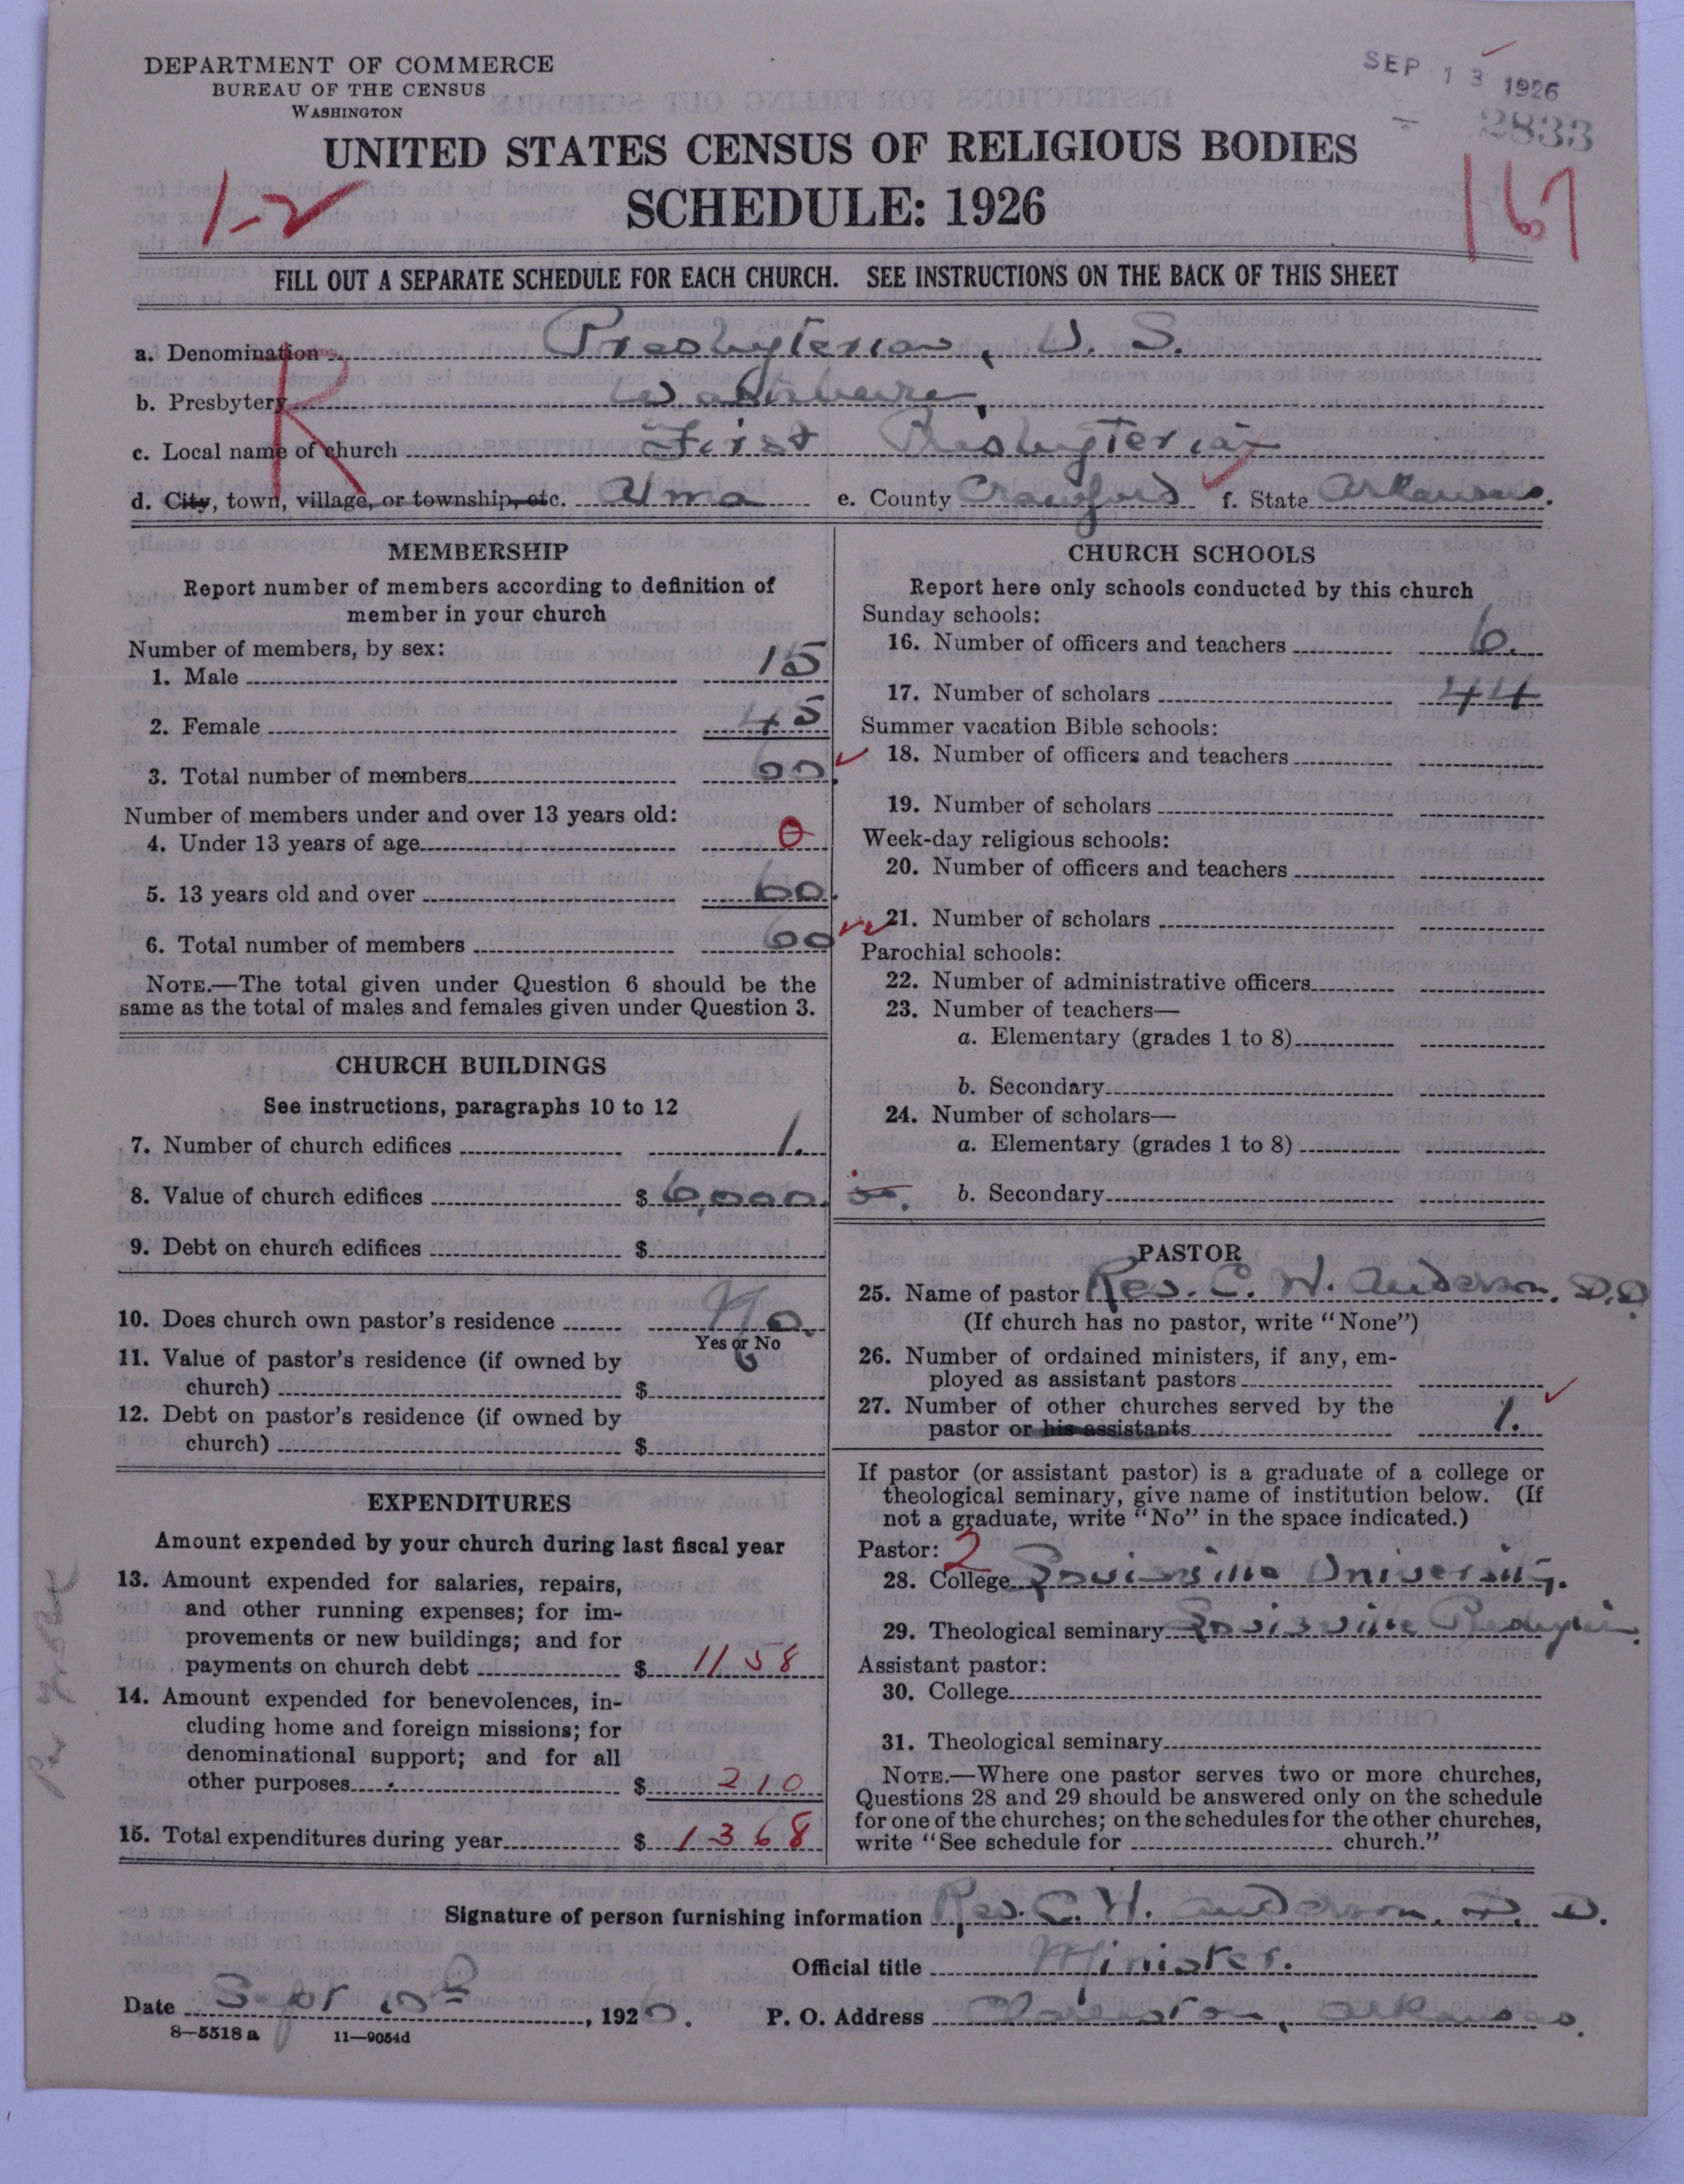 DEPARTMENT OF COMMERCE
BUREAU OF THE CENSUS
WASHINGTON
SEP 13 1926
2833
UNITED STATES CENSUS OF RELIGIOUS BODIES
SCHEDULE: 1926
1-2
167
FILL OUT A SEPARATE SCHEDULE FOR EACH CHURCH. SEE INSTRUCTIONS ON THE BACK OF THIS SHEET
R
a. Denomination Presbyterian, U. S.
b. Presbytery
c. Local name of church First Presbyterian
d. City, town, village, or township, etc. Alma e. County Crawford f. State Arkansas.
MEMBERSHIP
Report number of members according to definition of
member in your church
Number of members, by sex:
1. Male 15
2. Female 45
3. Total number of members 60.
Number of members under and over 13 years old:
4. Under 13 years of age 0
5. 13 years old and over 60.
6. Total number of members 60
NOTE.—The total given under Question 6 should be the
same as the total of males and females given under Question 3.
CHURCH BUILDINGS
See instructions, paragraphs 10 to 12
7. Number of church edifices 1.
8. Value of church edifices $ 6,000.
9. Debt on church edifices $
10. Does church own pastor's residence No.
Yes or No
11. Value of pastor's residence (if owned by
church) $
12. Debt on pastor's residence (if owned by
church) $
EXPENDITURES
Amount expended by your church during last fiscal year
13. Amount expended for salaries, repairs,
and other running expenses; for im-
provements or new buildings; and for
payments on church debt $ 1158
14. Amount expended for benevolences, in-
cluding home and foreign missions; for
denominational support; and for all
other purposes $ 210
15. Total expenditures during year $ 1368
CHURCH SCHOOLS
Report here only schools conducted by this church
Sunday schools:
16. Number of officers and teachers 6.
17. Number of scholars 44
Summer vacation Bible schools:
18. Number of officers and teachers
19. Number of scholars
Week-day religious schools:
20. Number of officers and teachers
21. Number of scholars
Parochial schools:
22. Number of administrative officers
23. Number of teachers—
a. Elementary (grades 1 to 8)
b. Secondary
24. Number of scholars—
a. Elementary (grades 1 to 8)
b. Secondary
PASTOR
25. Name of pastor Rev. C. H. Anderson, D.D
(If church has no pastor, write "None")
26. Number of ordained ministers, if any, em-
ployed as assistant pastors
27. Number of other churches served by the
pastor or his assistants 1.
If pastor (or assistant pastor) is a graduate of a college or
theological seminary, give name of institution below. (If
not a graduate, write "No" in the space indicated.)
Pastor: 2
28. College Louisville University.
29. Theological seminary Louisville
Assistant pastor:
30. College
31. Theological seminary
NOTE.—Where one pastor serves two or more churches,
Questions 28 and 29 should be answered only on the schedule
for one of the churches; on the schedules for the other churches,
write "See schedule for church."
Signature of person furnishing information Rev. C. H. Anderson, D. D.
Official title Minister.
Date Sept , 1926. P. O. Address Arkansas.
8—5518 a 11—9054d